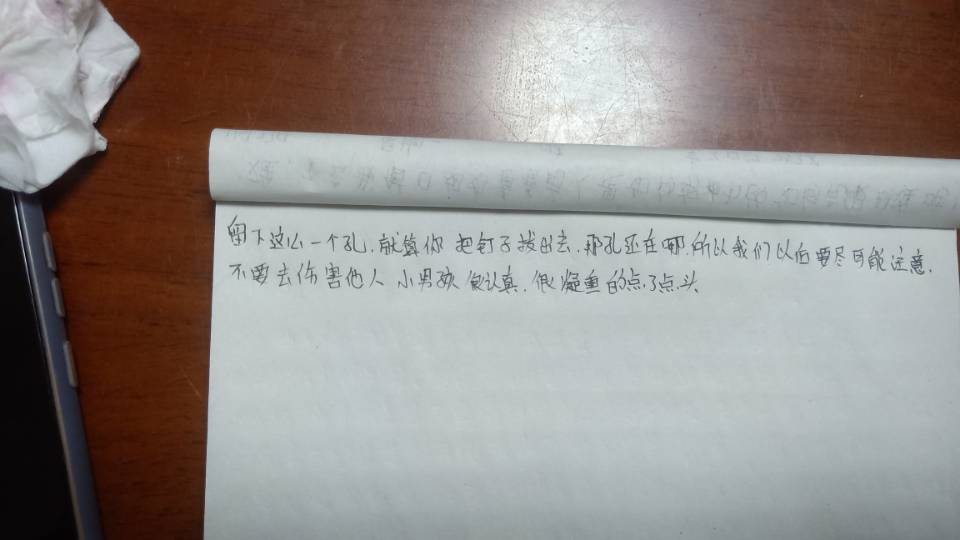 留下这么一个孔.就算你把钉子拔出去.那孔还在哪.所以我们以后要尽可能注意.
不要去伤害他人 小男孩很认真.很凝重的点了点头